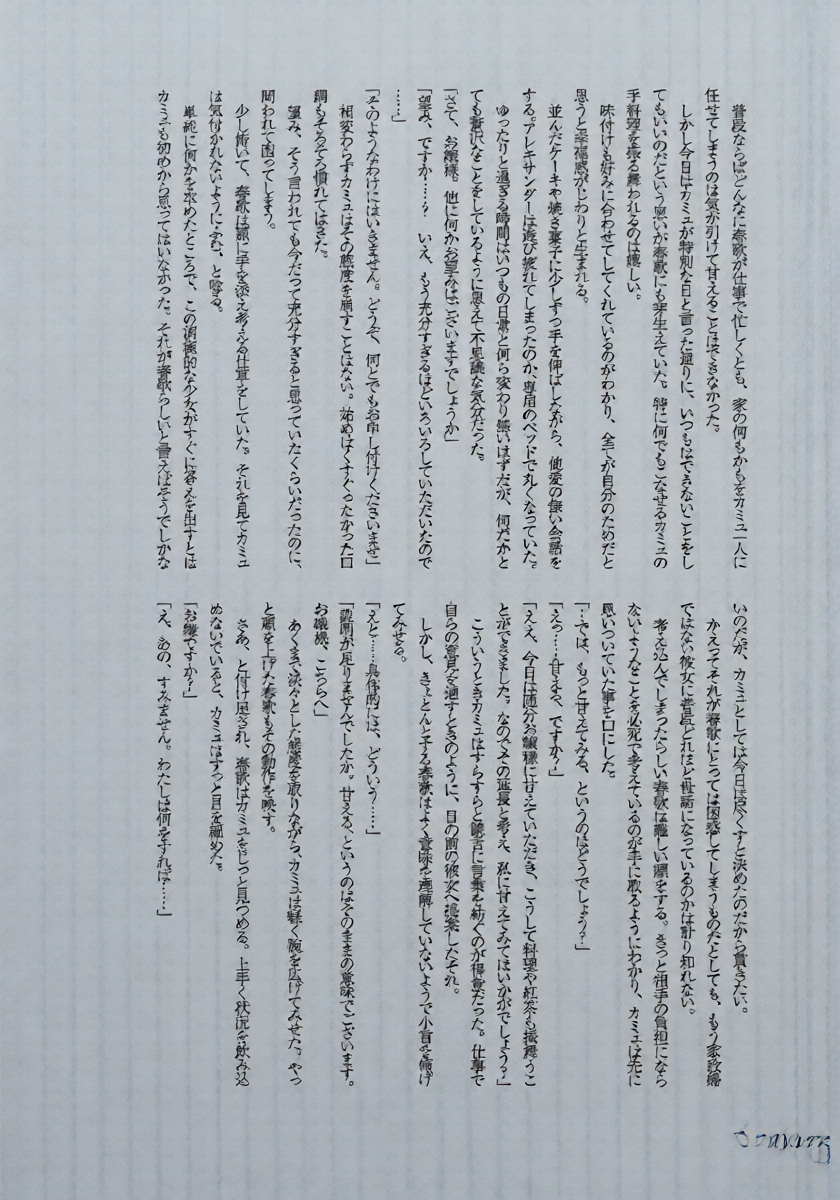 普段ならばどんなに春歌が仕事で忙しくとも、家の何もかもをカミュ一人に
任せてしまうのは気が引けて甘えることはできなかった。
しかし今日はカミュが特別な日と言った通りに、いつもはできないことをし
てもいいのだという思いが春歌にも芽生えていた。特に何でもこなせるカミュの
手料理を振る舞われるのは嬉しい。
味付けも好みに合わせてしてくれているのがわかり、全てが自分のためだと
思うと幸福感がじわりと生まれる。
並んだケーキや焼き菓子に少しずつ手を伸ばしながら、他愛の無い会話を
する。アレキサンダーは遊び疲れてしまったのか、専用のベッドで丸くなっていた。
ゆったりと過ぎる時間はいつもの日常と何ら変わり無いはずだが、何だかと
ても贅沢なことをしているように思えて不思議な気分だった。
「さて、お嬢様。他に何かお望みはございますでしょうか」
「望み、ですか……? いえ、もう充分すぎるほどいろいろしていただいたので
……」
「そのようなわけにはいきません。どうぞ、何とでもお申し付けくださいませ」
相変わらずカミュはその態度を崩すことはない。始めはくすぐったかった口
調もそろそろ慣れてはきた。
望み、そう言われても今だって充分すぎると思っていたくらいだったのに、
問われて困ってしまう。
少し俯いて、春歌は顎に手を添え考える仕草をしていた。それを見てカミュ
は気付かれないようにふむ、と唸る。
単純に何かを求めたところで、この消極的な少女がすぐに答えを出すとは
カミュも初めから思ってはいなかった。それが春歌らしいと言えばそうでしかな
いのだが、カミュとしては今日は尽くすと決めたのだから貫きたい。
かえってそれが春歌にとっては困惑してしまうものだとしても、もう家政婦
ではない彼女に普段どれほど世話になっているのかは計り知れない。
考え込んでしまったらしい春歌は難しい顔をする。きっと相手の負担になら
ないようなことを必死で考えているのが手に取るようにわかり、カミュは先に
思いついていた事を口にした。
「…では、もっと甘えてみる、というのはどうでしょう?」
「えっ……甘える、ですか?」
「ええ、今日は随分お嬢様に甘えていただき、こうして料理や紅茶も振舞うこ
とができました。なのでその延長と考え、私に甘えてみてはいかがでしょう?」
こういうときカミュはすらすらと饒舌に言葉を紡ぐのが得意だった。仕事で
自らの意見を通すときのように、目の前の彼女へ提案したそれ。
しかし、きょとんとする春歌はよく意味を理解していないようで小首を傾げ
てみせる。
「えと……具体的には、どういう……」
「説明が足りませんでしたか。甘える、というのはそのままの意味でございます。
お嬢様、こちらへ」
あくまで淡々とした態度を取りながら、カミュは軽く腕を広げてみせた。やっ
と顔を上げた春歌もその動作を映す。
さあ、と付け足され、春歌はカミュをじっと見つめる。上手く状況を飲み込
めないでいると、カミュはすっと目を細めた。
「お嫌ですか?」
「え、あの、すみません。わたしは何をすれば……」